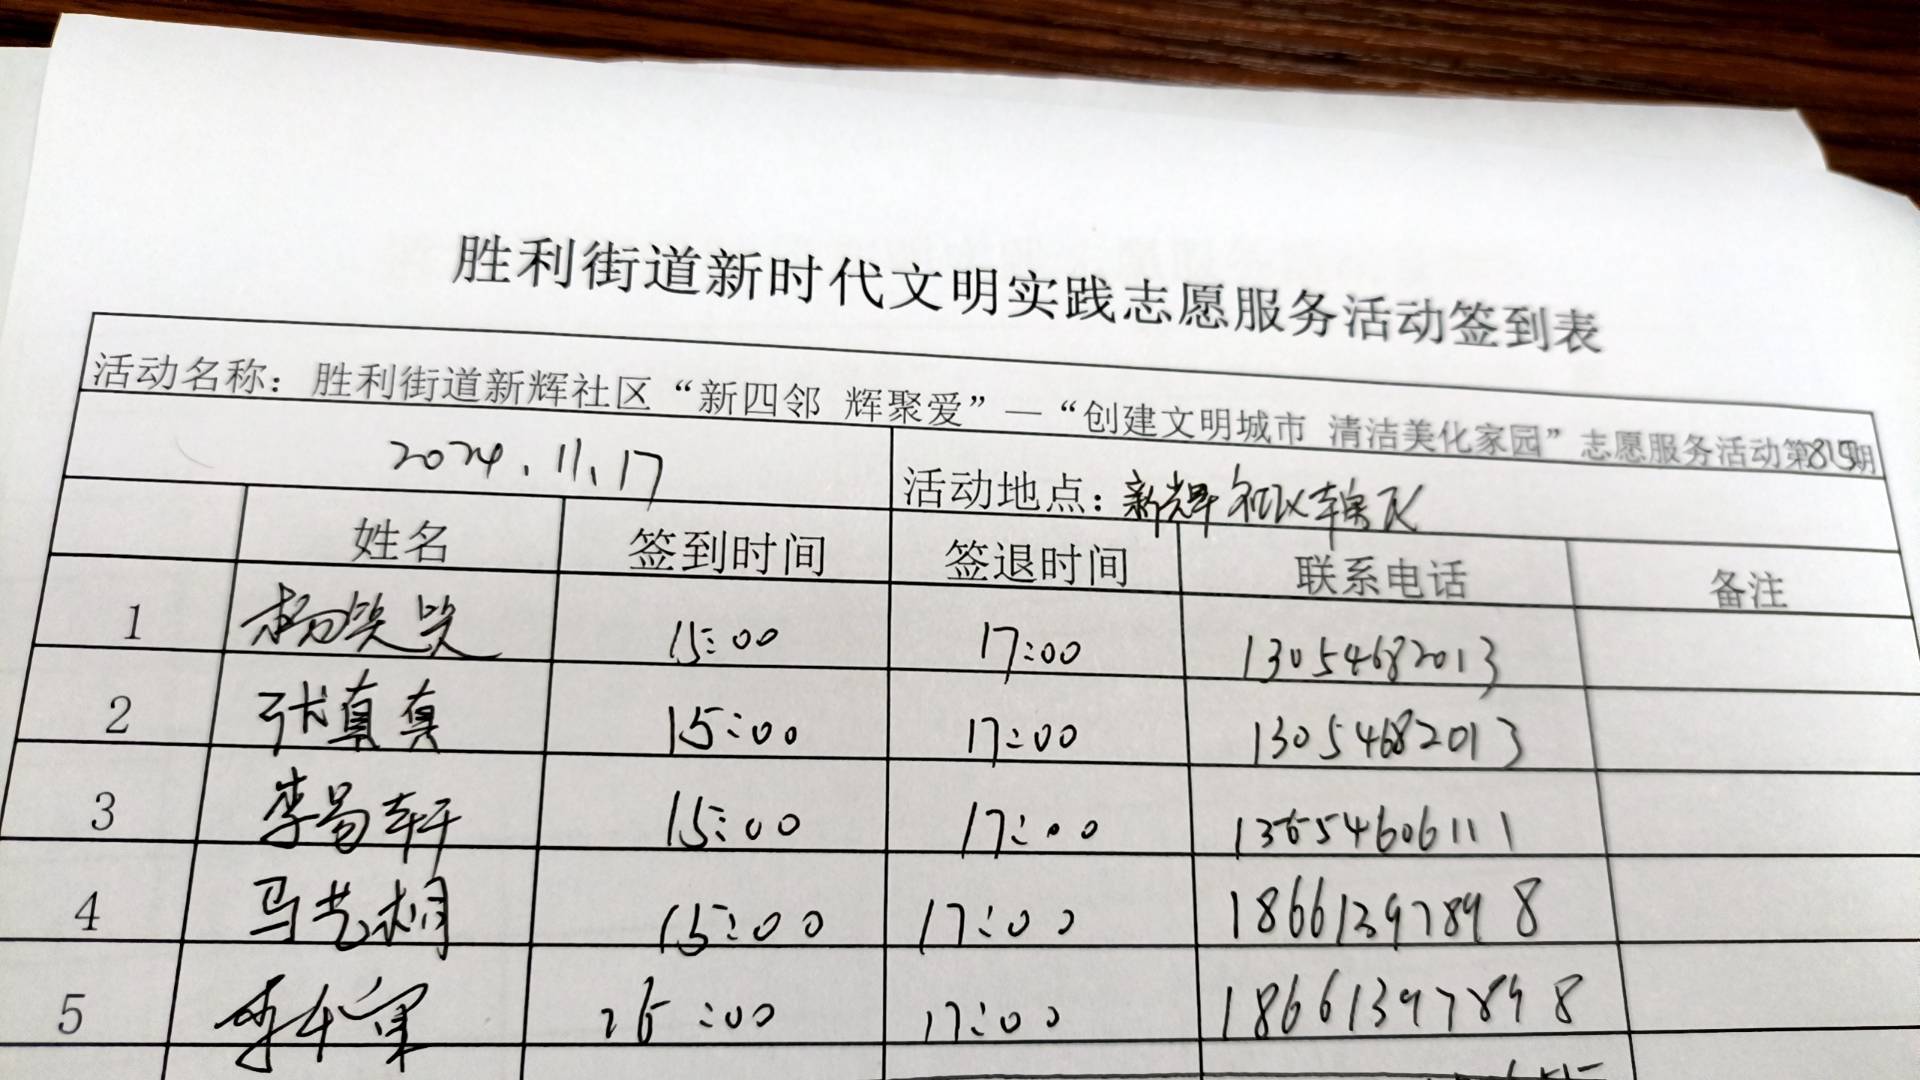 胜利街道新时代文明实践志愿服务活动签到表
活动名称：胜利街道新辉社区“新四邻 辉聚爱”—“创建文明城市 清洁美化家园”志愿服务活动第819期
2024.11.17 活动地点：新辉社区辖区
姓名 签到时间 签退时间 联系电话 备注
1 杨笑笑 15:00 17:00 13054682013
2 张真真 15:00 17:00 13054682013
3 李昂轩 15:00 17:00 13654606111
4 马艺桐 15:00 17:00 18661397898
5 15:00 17:00 18661397898